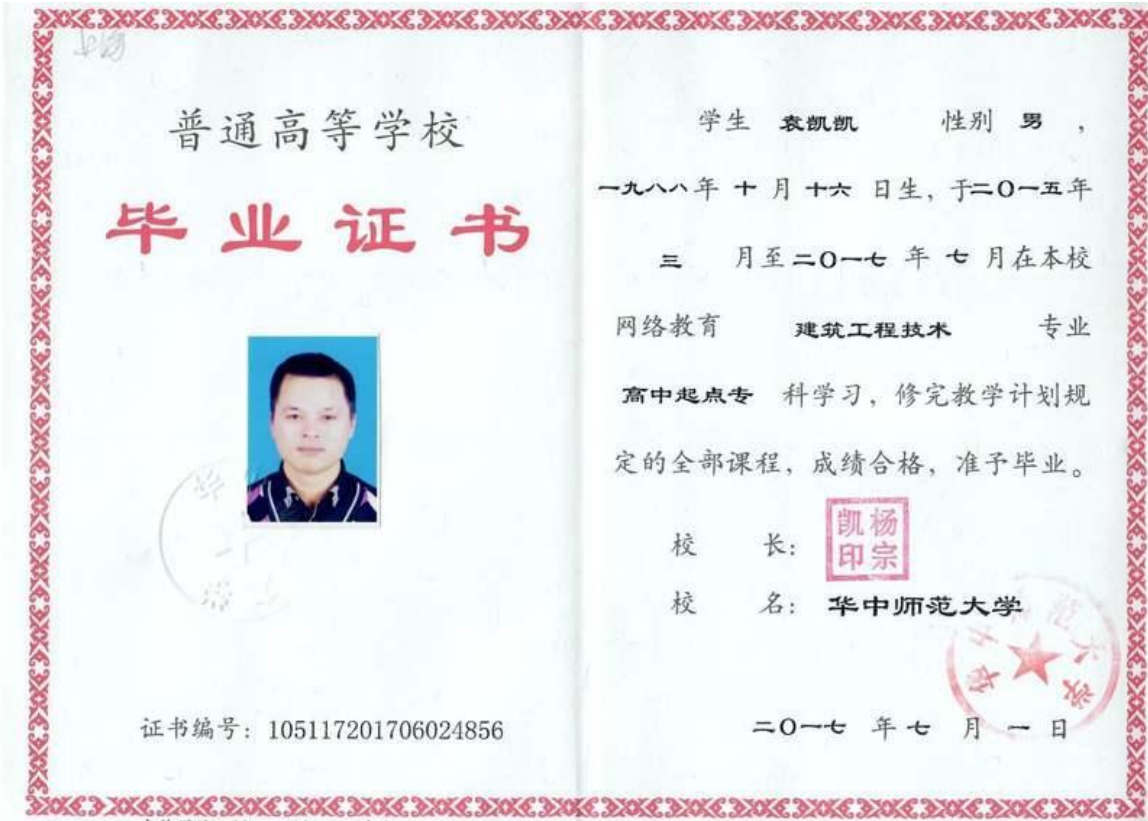 普通高等学校
毕业证书
证书编号：105117201706024856
学生 袁凯凯 性别 男 ，
一九八八年 十 月 十六 日生，于二〇一五年
三 月至二〇一七 年 七 月在本校
网络教育 建筑工程技术 专业
高中起点专 科学习，修完教学计划规
定的全部课程，成绩合格，准予毕业。
校 长：
杨宗
凯印
校 名：华中师范大学
华中师范大学
二〇一七 年 七 月 一 日